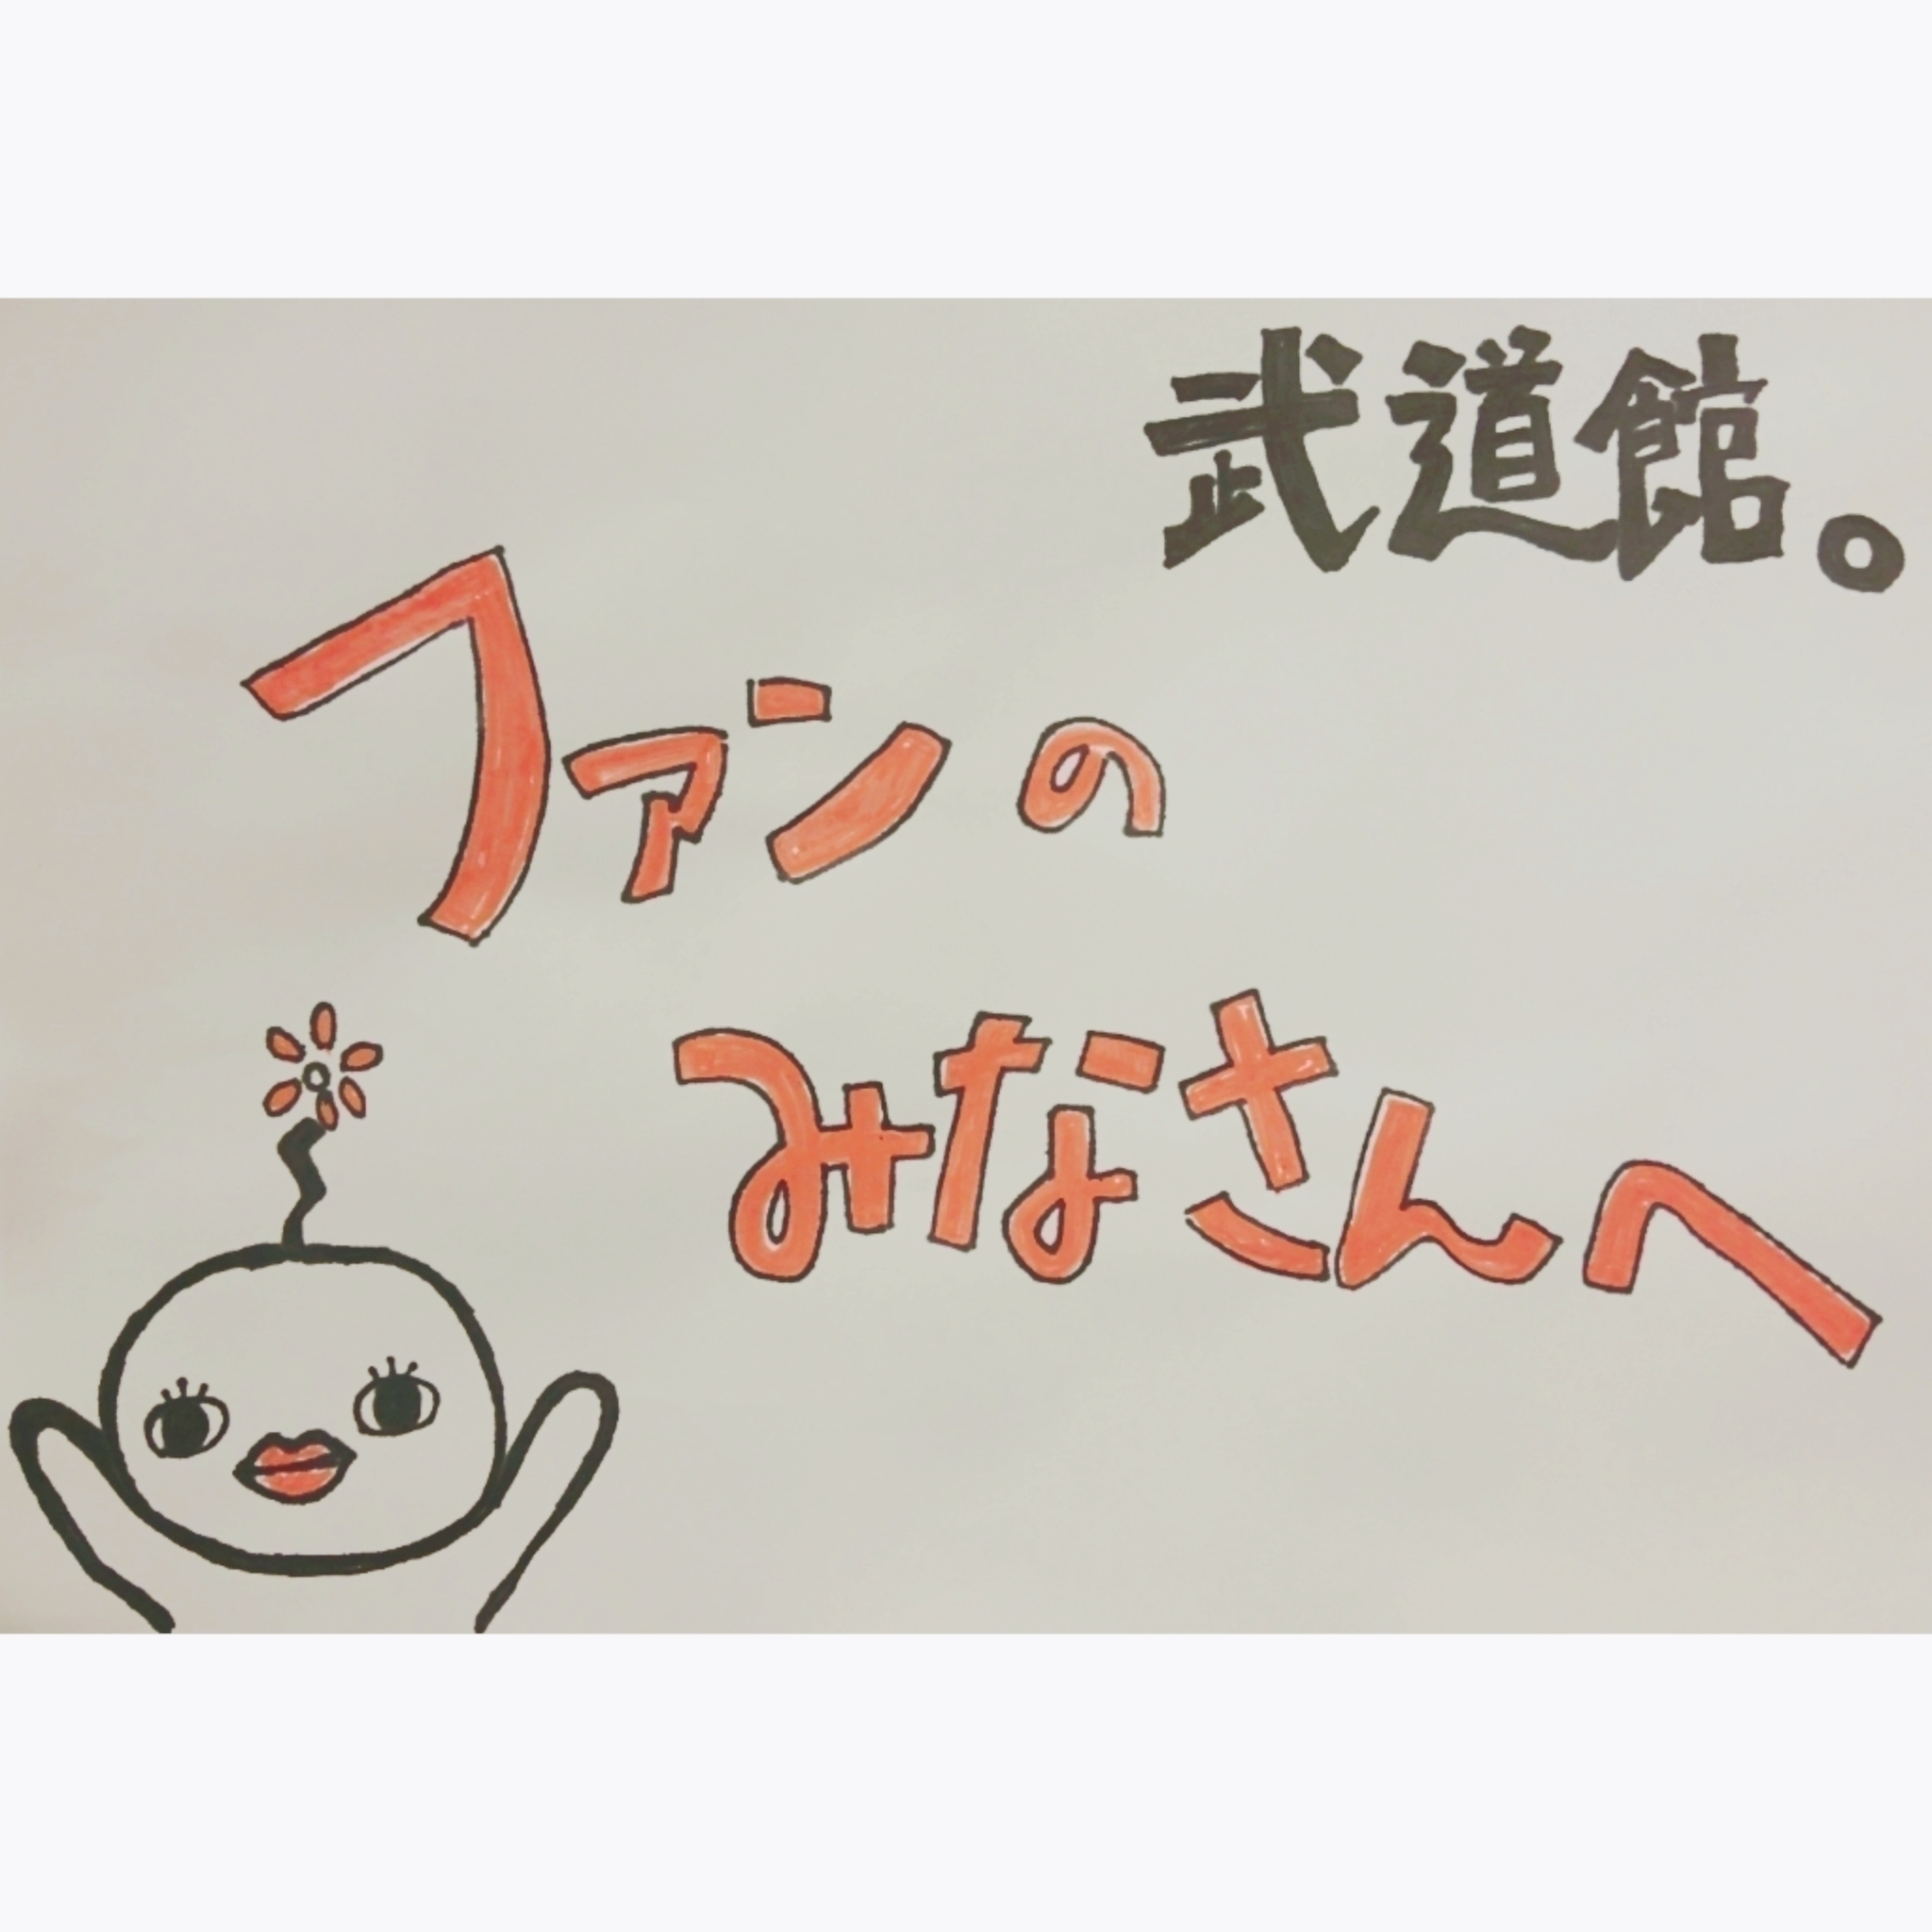 武道館。
ファンの
みなさんへ